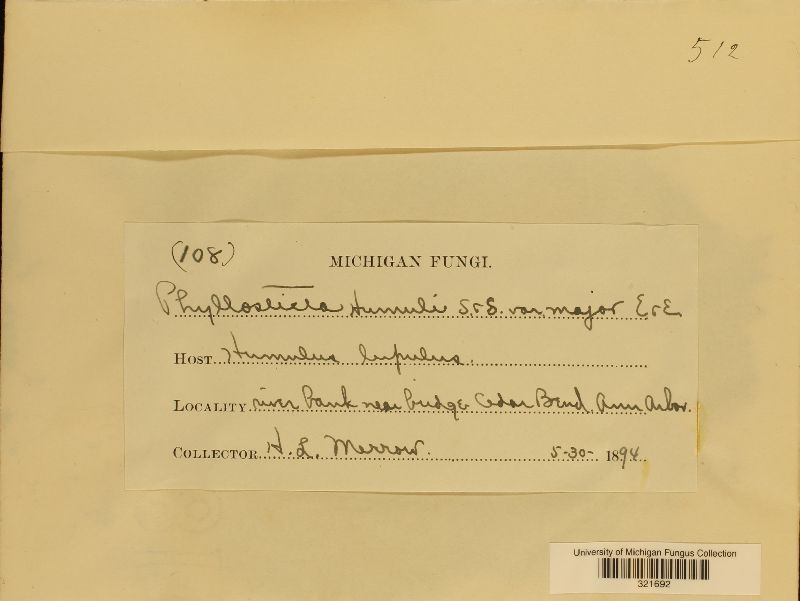 512
(108)
MICHIGAN FUNGI.
Phyllosticta Humuli S. & S. var major E & E.
HOST Humulus lupulus.
LOCALITY river bank near bridge Cedar Bend, Ann Arbor.
COLLECTOR H. L. Merrow. 5-30- 1894
University of Michigan Fungus Collection
321692